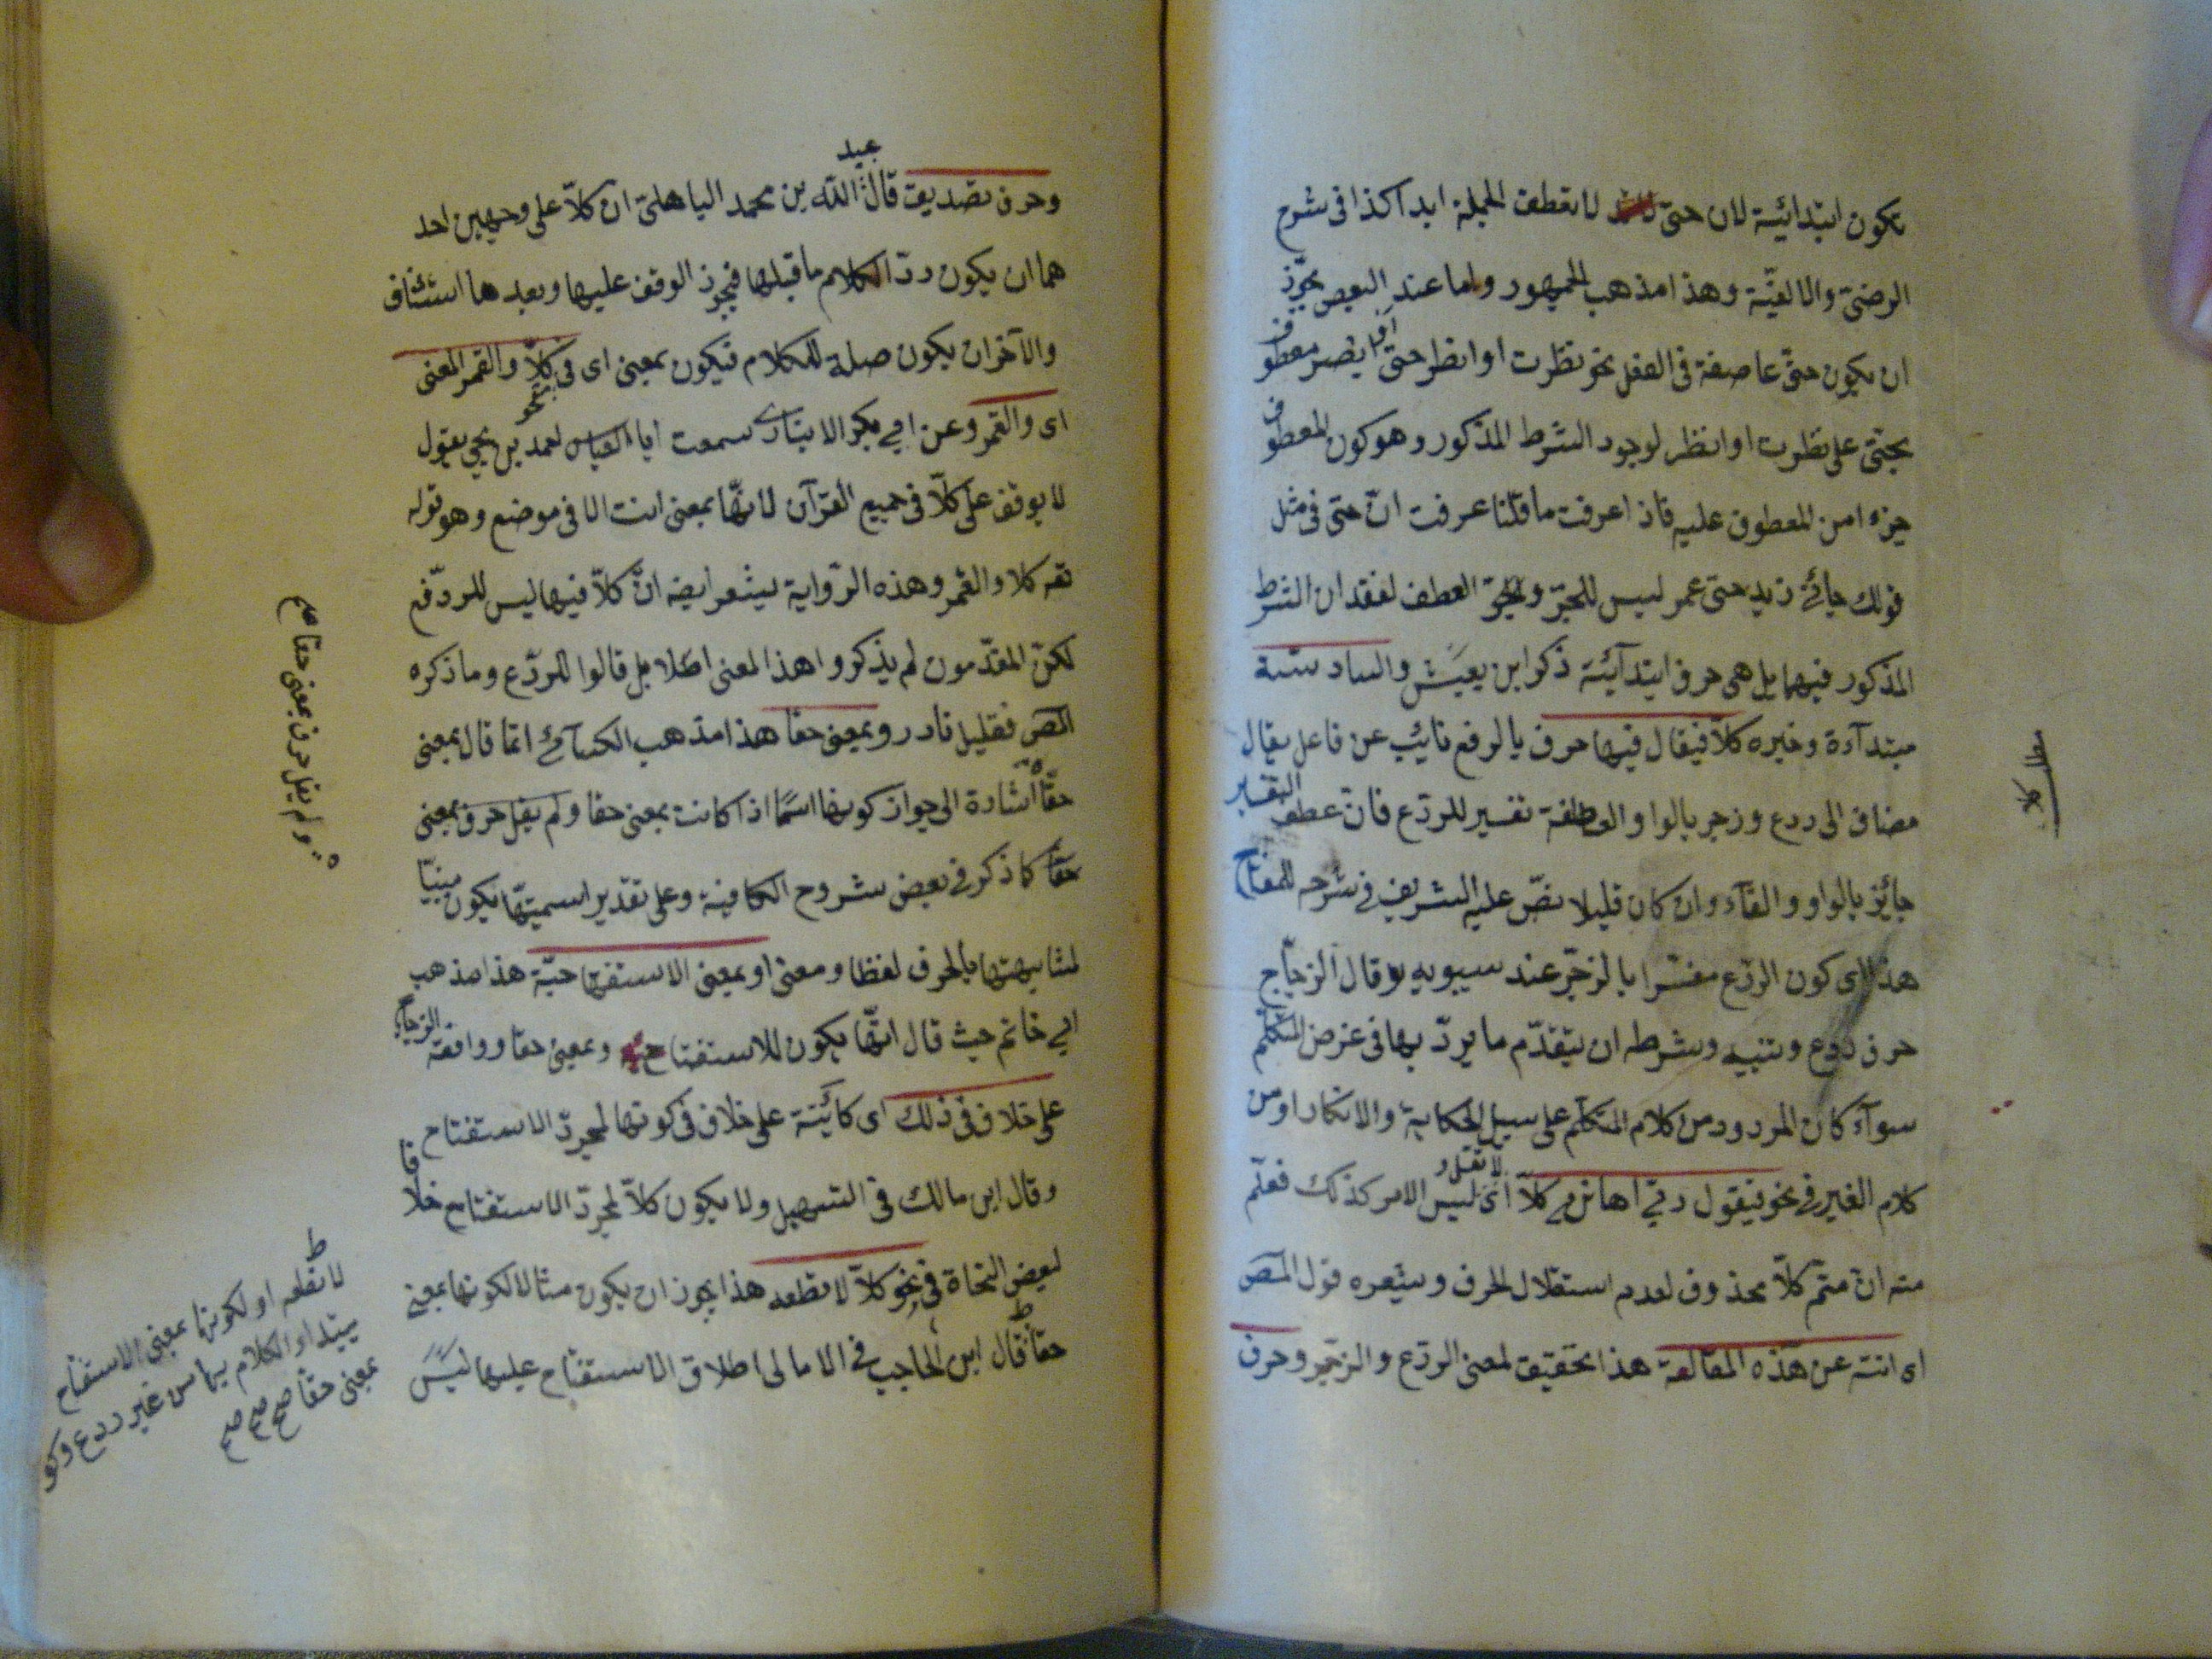 يكون ابتدائية لان حتى لا يعطف الجملة ابدا كذا فى شرح
الرضى والالفيّة وهذا مذهب الجمهور واما عند البعض يجوّز
ان يكون حتّى عاطفة فى الفعل نحو نظرت او انظر حتى ابصر معطوف
بحتى على نظرت او انظر لوجود الشرط المذكور وهو كون المعطوف
جزءا من المعطوف عليه فاذا عرفت ما قلنا عرفت انّ حتى فى مثل
قولك جائنى زيد حتى عمر ليس للجرّ والعطف لفقدان الشرط
المذكور فيهما بل هى حرف ابتدآئية ذكر ابن يعيش والسادسة
مبتدآءة وخبره كلاّ فيقال فيها حرف بالرفع نايب عن فاعل يقال
مضاف الى ردع وزجر بالواو العاطفة تفسير للردع فانّ عطف التفسير
جائز بالواو والفآء وان كان قليلا نصّ عليه الشريف فى شرحه للمفتاح
هذا اى كون الردع مفسّرا بالزجر عند سيبويه وقال الزجاج
حرف ردع وتنبيه وشرطه ان يتقدّم ما يردّ بها فى غرض المتكلم
سوآء كان المردود من كلام المتكلم على سبيل الحكاية والانكار او من
كلام الغير فى نحو فيقول ربّى اهانن كلاّ اى لا تقل و ليس الامر كذلك فعلم
منه انّ متمّ كلاّ محذوف لعدم استقلال الحرف ويشعره قول المص
اى انته عن هذه المقالة هذا تحقيق لمعنى الردع والزجر وحرف
مطلب كلا
وحرف تصديق قال عبد الله بن محمد الباهلى ان كلاّ على وجهين احد
هما ان يكون ردّ الكلام ما قبلها فيجوز الوقف عليها وبعدها استئناف
والآخر ان يكون صلة للكلام فيكون بمعنى اى فى نحو كلاّ والقمر المعنى
اى والقمر وعن ابى بكر الانبارى سمعت ابا العباس احمد بن يحيى يقول
لا يوقف على كلاّ فى جميع القرآن لانها بمعنى انت الا فى موضع وهو قوله
تعه كلا والقمر وهذه الرواية يشعر ايضه انّ كلاّ فيها ليس للردّ فم
لكن المقدّمون لم يذكروا هذا المعنى اصلا بل قالوا للردع وما ذكره
المص فقليل نادر وبمعنى حقا هذا مذهب الكسآئى انما قال بمعنى
حقّا اشارة الى جواز كونها اسمًا اذا كانت بمعنى حقا ولم يقل حرف بمعنى
حقا كما ذكر فى بعض شروح الكافية وعلى تقدير اسميتها يكون مبنيّا
لمشابهتها بالحرف لفظا ومعنى او بمعنى الاستفتاحيّة هذا مذهب
ابى حاتم حيث قال انّها يكون للاستفتاح وبمعنى حقا ووافقه الزجاج
على خلاف فى ذلك اى كائنة على خلاف فى كونها لمجرد الاستفتاح
وقال ابن مالك فى التسهيل ولا يكون كلاّ لمجرّد الاستفتاح خلافا
لبعض النحاة فى نحو كلاّ لا تطعه هذا يجوز ان يكون مثالا لكونها بمعنى
حقا قال ابن الحاجب فى الامالى اطلاق الاستفتاح عليها ليس
ولم يقل حرف بمعنى حقا
لا تطعه او لكونها بمعنى الاستفتاح
يبتداء الكلام بها من غير ردع وكو
بمعنى حقا صح صح صح